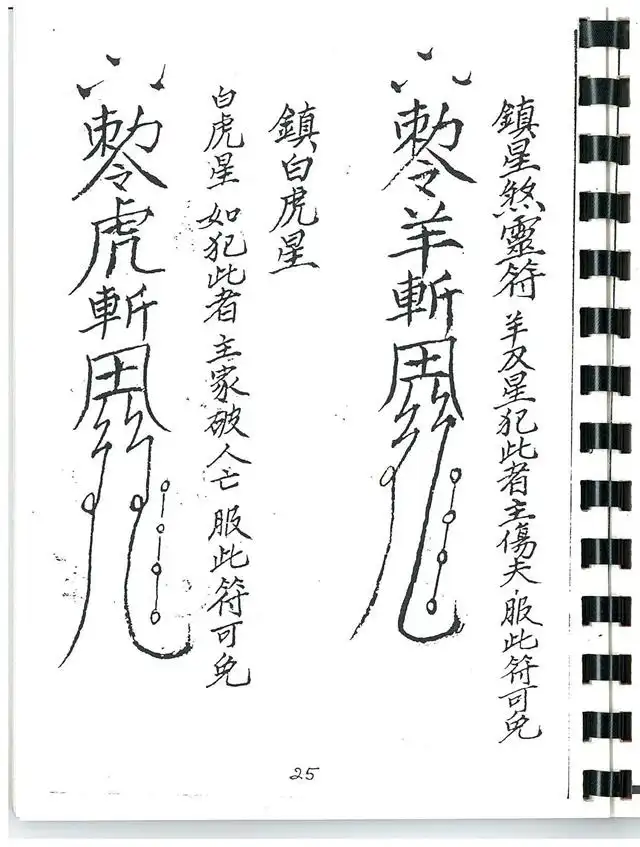 鎮星煞靈符 羊及星犯此者主傷夫,服此符可免
勅令羊斬
鎮白虎星
白虎星 如犯此者 主家破人亡 服此符可免
勅令虎斬
25